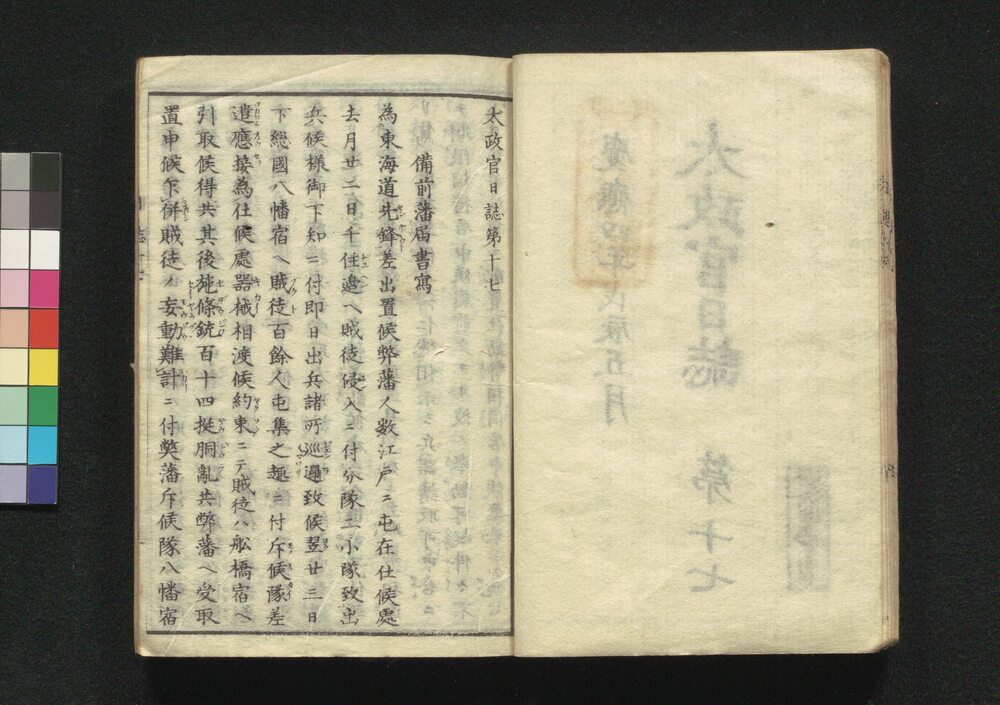 太政官日誌第十七
備前藩届書寫
為東海道先鋒差出置候弊藩人数江戸ニ屯在仕候處
去月廿二日千住邉ヘ賊徒侵入ニ付分隊二小隊致出
兵候様御下知ニ付即日出兵諸所巡邏致候翌廿三日
下総國八幡宿ヘ賊徒百餘人屯集之趣ニ付斥候隊差
遣應接為仕候處器械相渡候約束ニテ賊徒ハ舩橋宿ヘ
引取候得共其後施條銃百十四挺胴亂共弊藩ヘ受取
置申候乍併賊徒ノ妄動難計ニ付弊藩斥候隊八幡宿